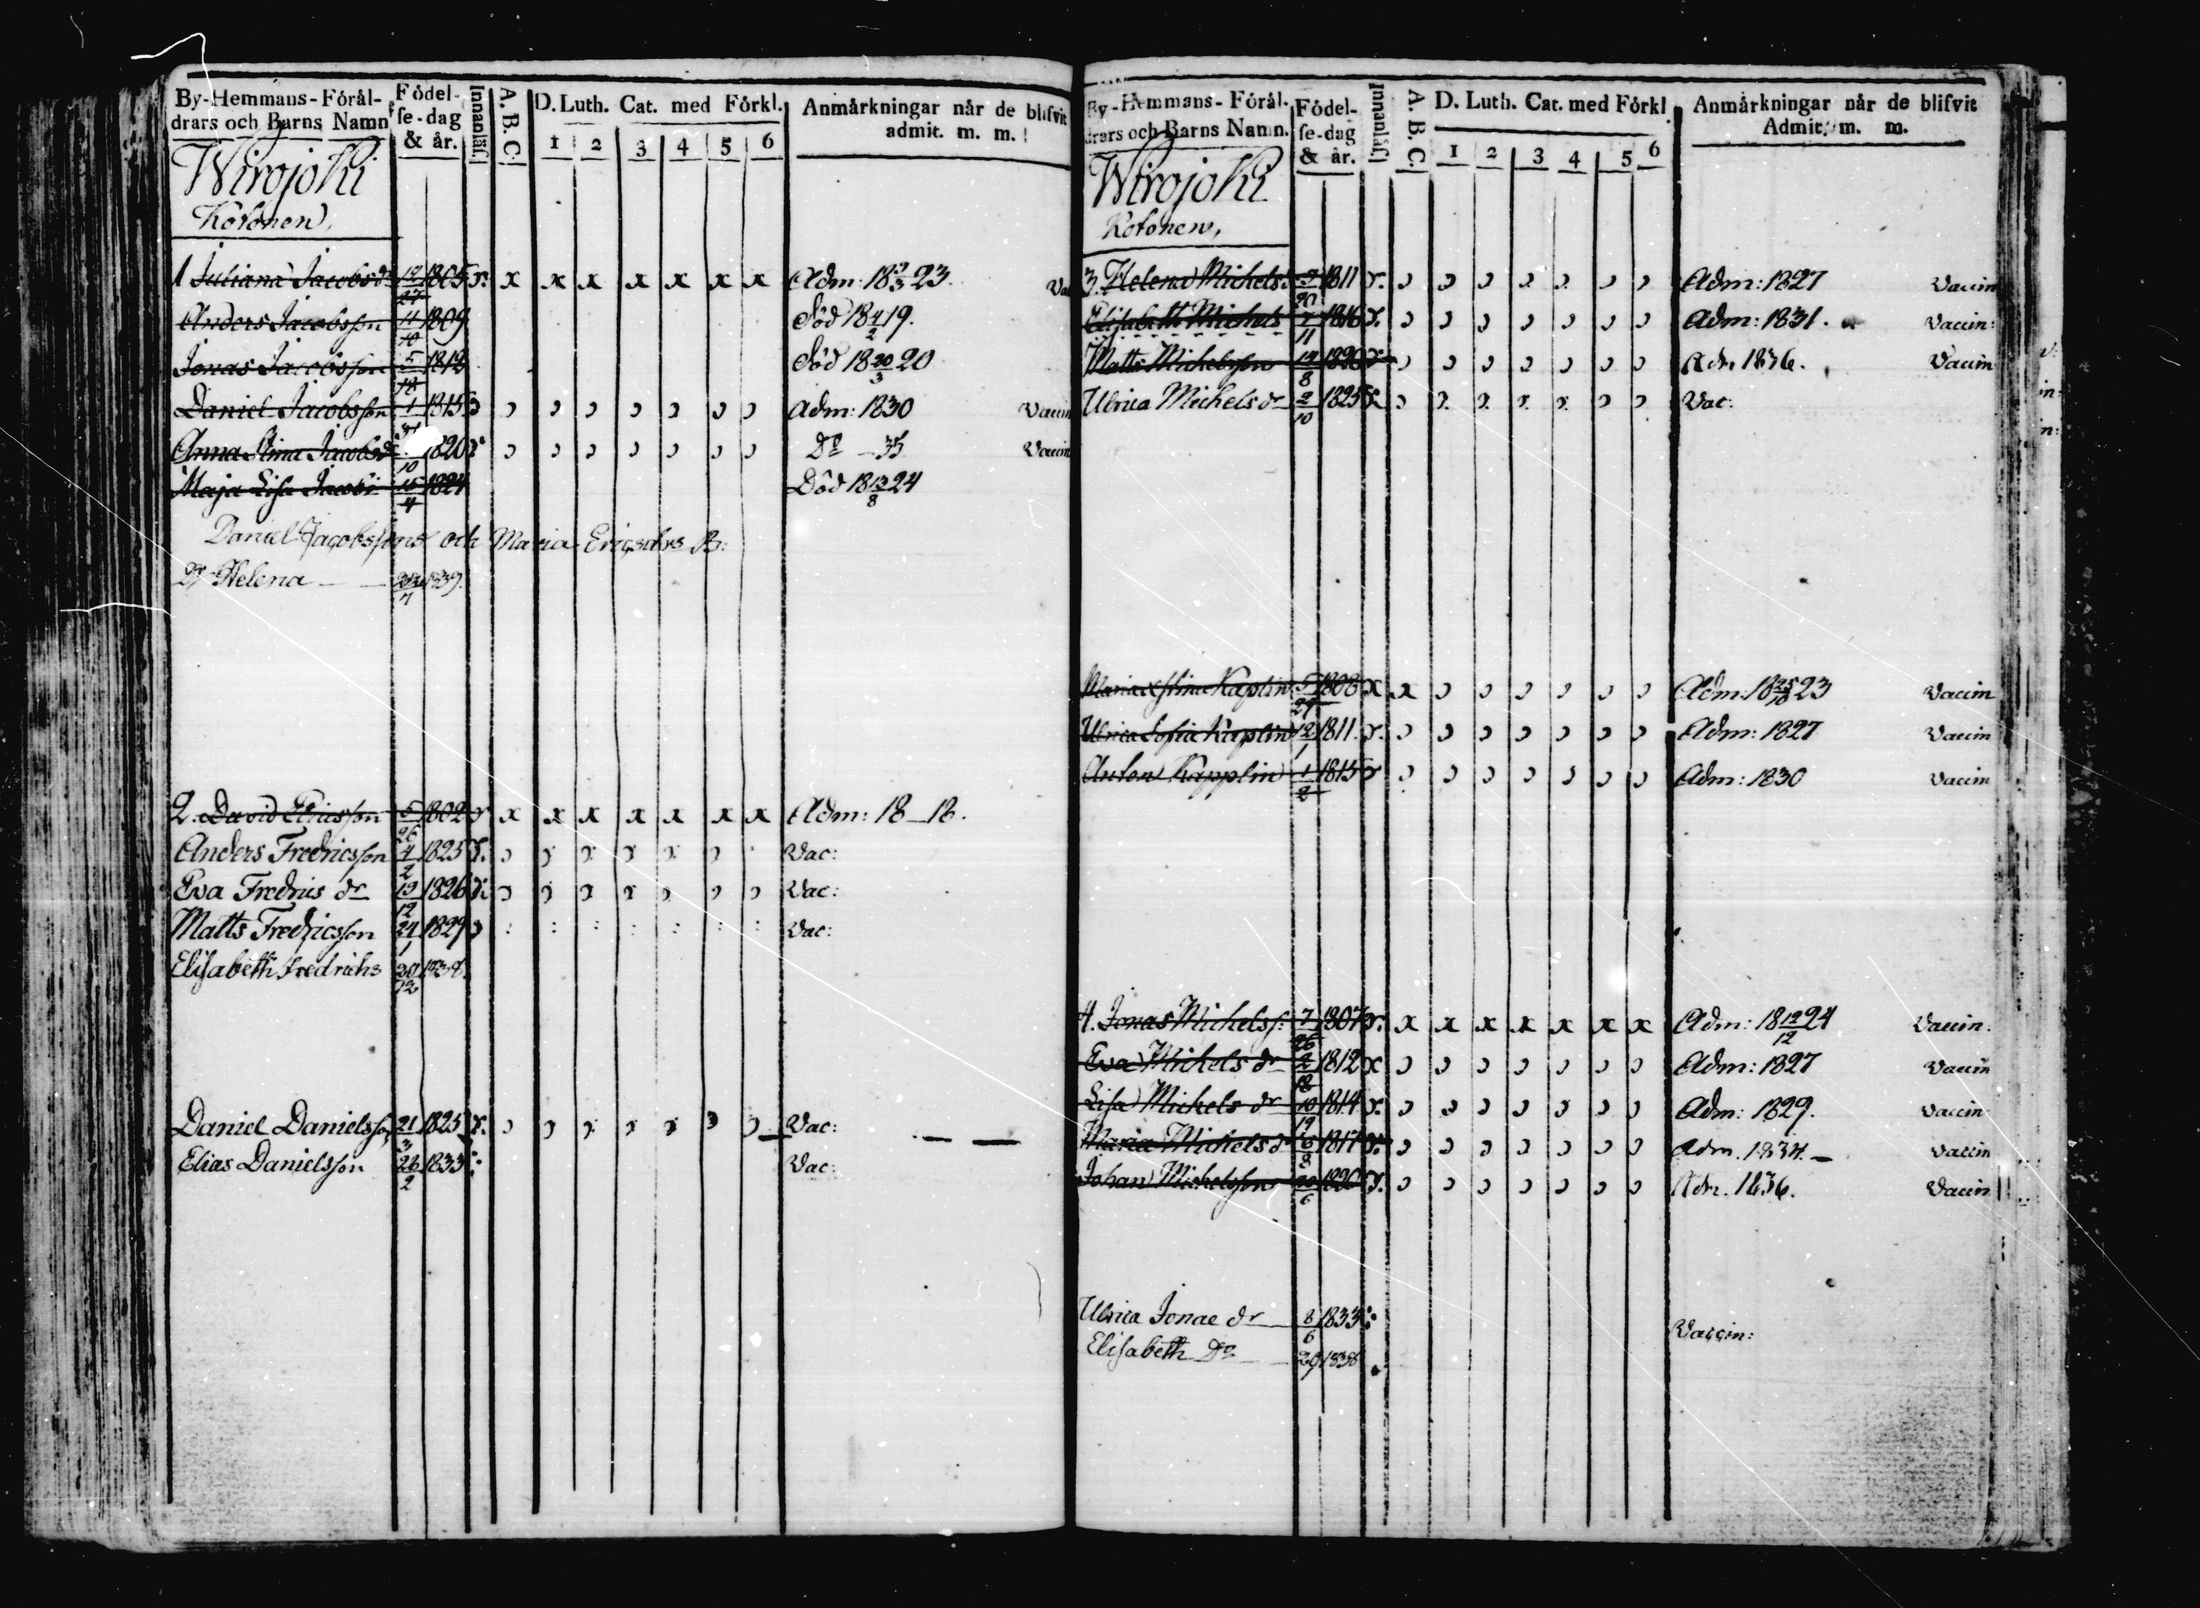 By-Hemmans-Förål-
drars och Barns Namn
Födel-
se-dag
& år.
Innanläs.
A. B. C.
D. Luth. Cat. med Förkl.
1 2 3 4 5 6
Anmärkningar når de blifvit
admit. m. m.
Wirojoki
Kotonen,
1 Juliana Jacobsdr 1805 x x x x x x x Adm: 18 23.
Anders Jacobsson 11/10 1809 Död 18 4/2 19.
Jonas Jacobsson 1812 Död 18 20/3 20
Daniel Jacobsson 1815 Adm: 1830 Vaccin
Anna Stina Jacobsdr 1820 Do - 35 Vaccin
Maja Lisa Jacobs 15/4 1824 Död 18 13/8 24
Daniel Jacobssons och Maria Ericsdrs B:
Dr Helena 1839.
2. David Eliasson 1802 x x x x x x x Adm: 18 - 18.
Anders Fredricsson 4/2 1825 Vac:
Eva Fredrics dr 19/12 1826 Vac:
Matts Fredricsson 24/1 1829 Vac:
Elisabeth Fredrichs 30/12 1838.
Daniel Danielsson 21/3 1825 Vac:
Elias Danielsson 28/2 1833 Vac:
By-Hemmans-Förål-
drars och Barns Namn.
Födel-
se-dag
& år.
Innanläs.
A. B. C.
D. Luth. Cat. med Förkl
1 2 3 4 5 6
Anmärkningar når de blifvit
Admit. m. m.
Wirojoki
Kotonen,
3. Helena Michels 1811 Adm: 1827 Vaccin
Elisabeth Michels 1816 Adm: 1831. Vaccin:
Matts Michelsson 14/8 1820 Adm 1836. Vaccin
Ulrica Michels dr 2/10 1825 Vac:
Maria Stina Kaplin 1808 Adm: 18 23 Vaccin
Ulrica Sofia Kaplin 12/1 1811. Adm: 1827 Vaccin
Anton Kapplin 1/2 1815 Adm: 1830 Vaccin
4. Jonas Michelss: 1807 x x x x x x x Adm: 18 12/12 24 Vaccin.
Eva Michels dr 1812 Adm: 1827 Vaccin
Lisa Michels dr 1814 Adm: 1829. Vaccin
Maria Michels dr 6/8 1817 Adm. 1834. Vaccin
Johan Michelsson 1820 Adm. 1836. Vaccin
Ulrica Jonae dr 8/6 1833 Vaccin:
Elisabeth Do 1838